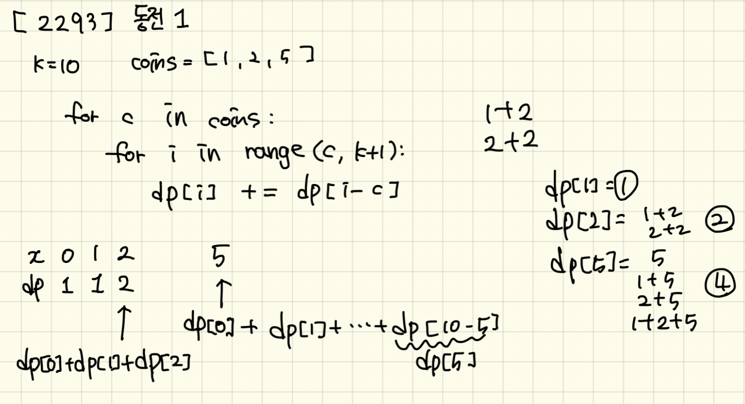 [2293] 동전 1
k=10 coins = [1, 2, 5]
for c in coins:
for i in range(c, k+1):
dp[i] += dp[i-c]
1+2
2+2
dp[1] = ①
dp[2] = 1+2
2+2 ②
dp[5] = 5
1+5
2+5
1+2+5 ④
x 0 1 2 5
dp 1 1 2
↑ ↑
dp[0]+dp[1]+dp[2]
dp[0] + dp[1] + ... + dp[10-5]
dp[5]